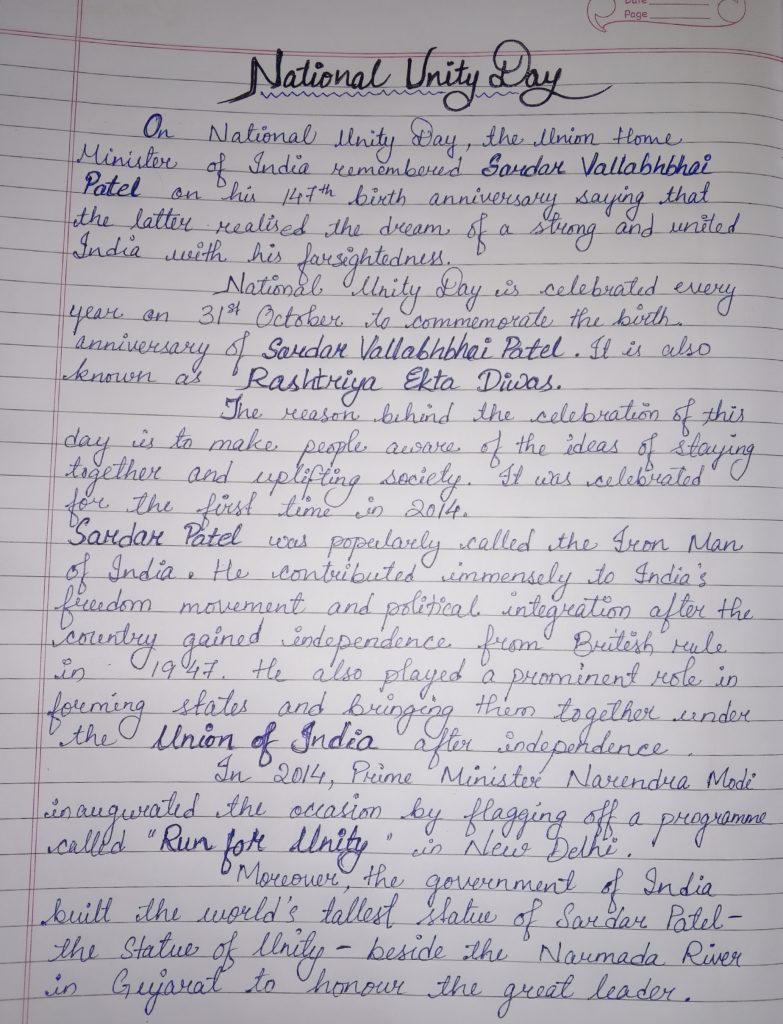 Date
Page
National Unity Day
On National Unity Day, the Union Home
Minister of India remembered Sardar Vallabhbhai
Patel on his 147th birth anniversary saying that
the latter realised the dream of a strong and united
India with his farsightedness.
National Unity Day is celebrated every
year on 31st October to commemorate the birth
anniversary of Sardar Vallabhbhai Patel. It is also
known as Rashtriya Ekta Diwas.
The reason behind the celebration of this
day is to make people aware of the ideas of staying
together and uplifting society. It was celebrated
for the first time in 2014.
Sardar Patel was popularly called the Iron Man
of India. He contributed immensely to India's
freedom movement and political integration after the
country gained independence from British rule
in 1947. He also played a prominent role in
forming states and bringing them together under
the Union of India after independence.
In 2014, Prime Minister Narendra Modi
inaugurated the occasion by flagging off a programme
called "Run for Unity" in New Delhi.
Moreover, the government of India
built the world's tallest statue of Sardar Patel-
the Statue of Unity - beside the Narmada River
in Gujarat to honour the great leader.